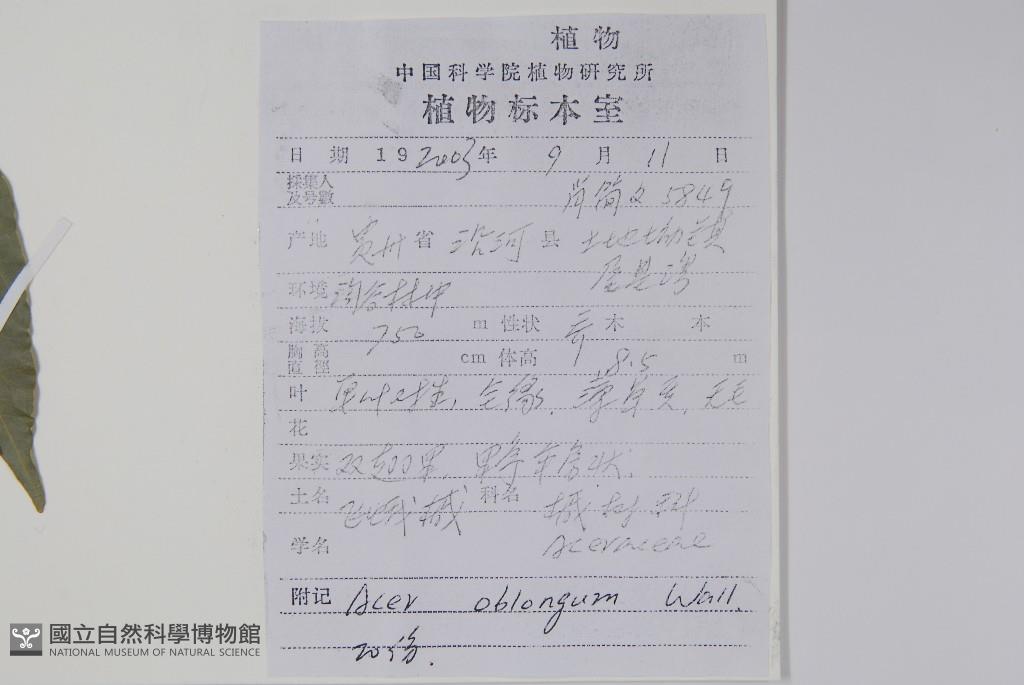 植物
中国科学院植物研究所
植物标本室
日 期 19 2003年 9 月 11 日
採集人
及号數 肖简文 5849
产地 贵州 省 沿河 县
环境 沟谷林中
海拔 750 m 性状 乔 木 本
胸高
直徑 cm 体高 8.5 m
叶 单叶对生, 全缘, 薄革质, 无毛
花
果实 双翅果, 果序伞房状.
土名 飞蛾槭 科名 槭树科
学名 Aceraceae
附记 Acer oblongum Wall.
20份.
國立自然科學博物館
NATIONAL MUSEUM OF NATURAL SCIENCE